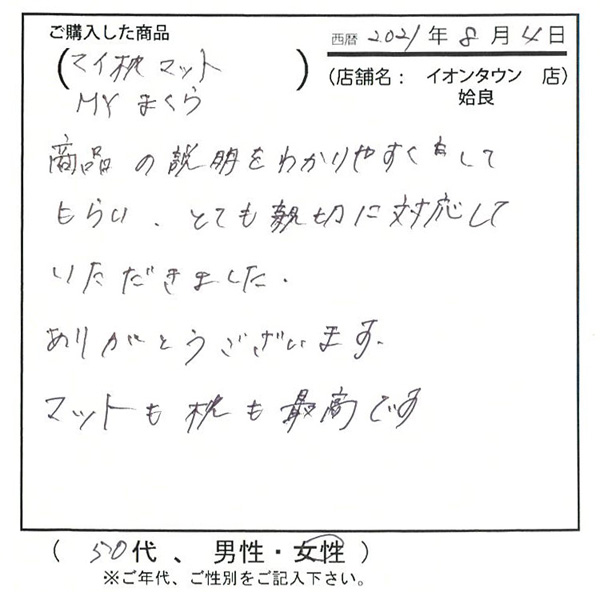 ご購入した商品
西暦 2021年 8月 4日
(マイ枕 マット
MYまくら)
(店舗名: イオンタウン 店)
姶良
商品の説明をわかりやすくして
もらい、とても親切に対応して
いただきました。
ありがとうございます。
マットも枕も最高です
( 50代 、 男性・女性 )
※ご年代、ご性別をご記入下さい。